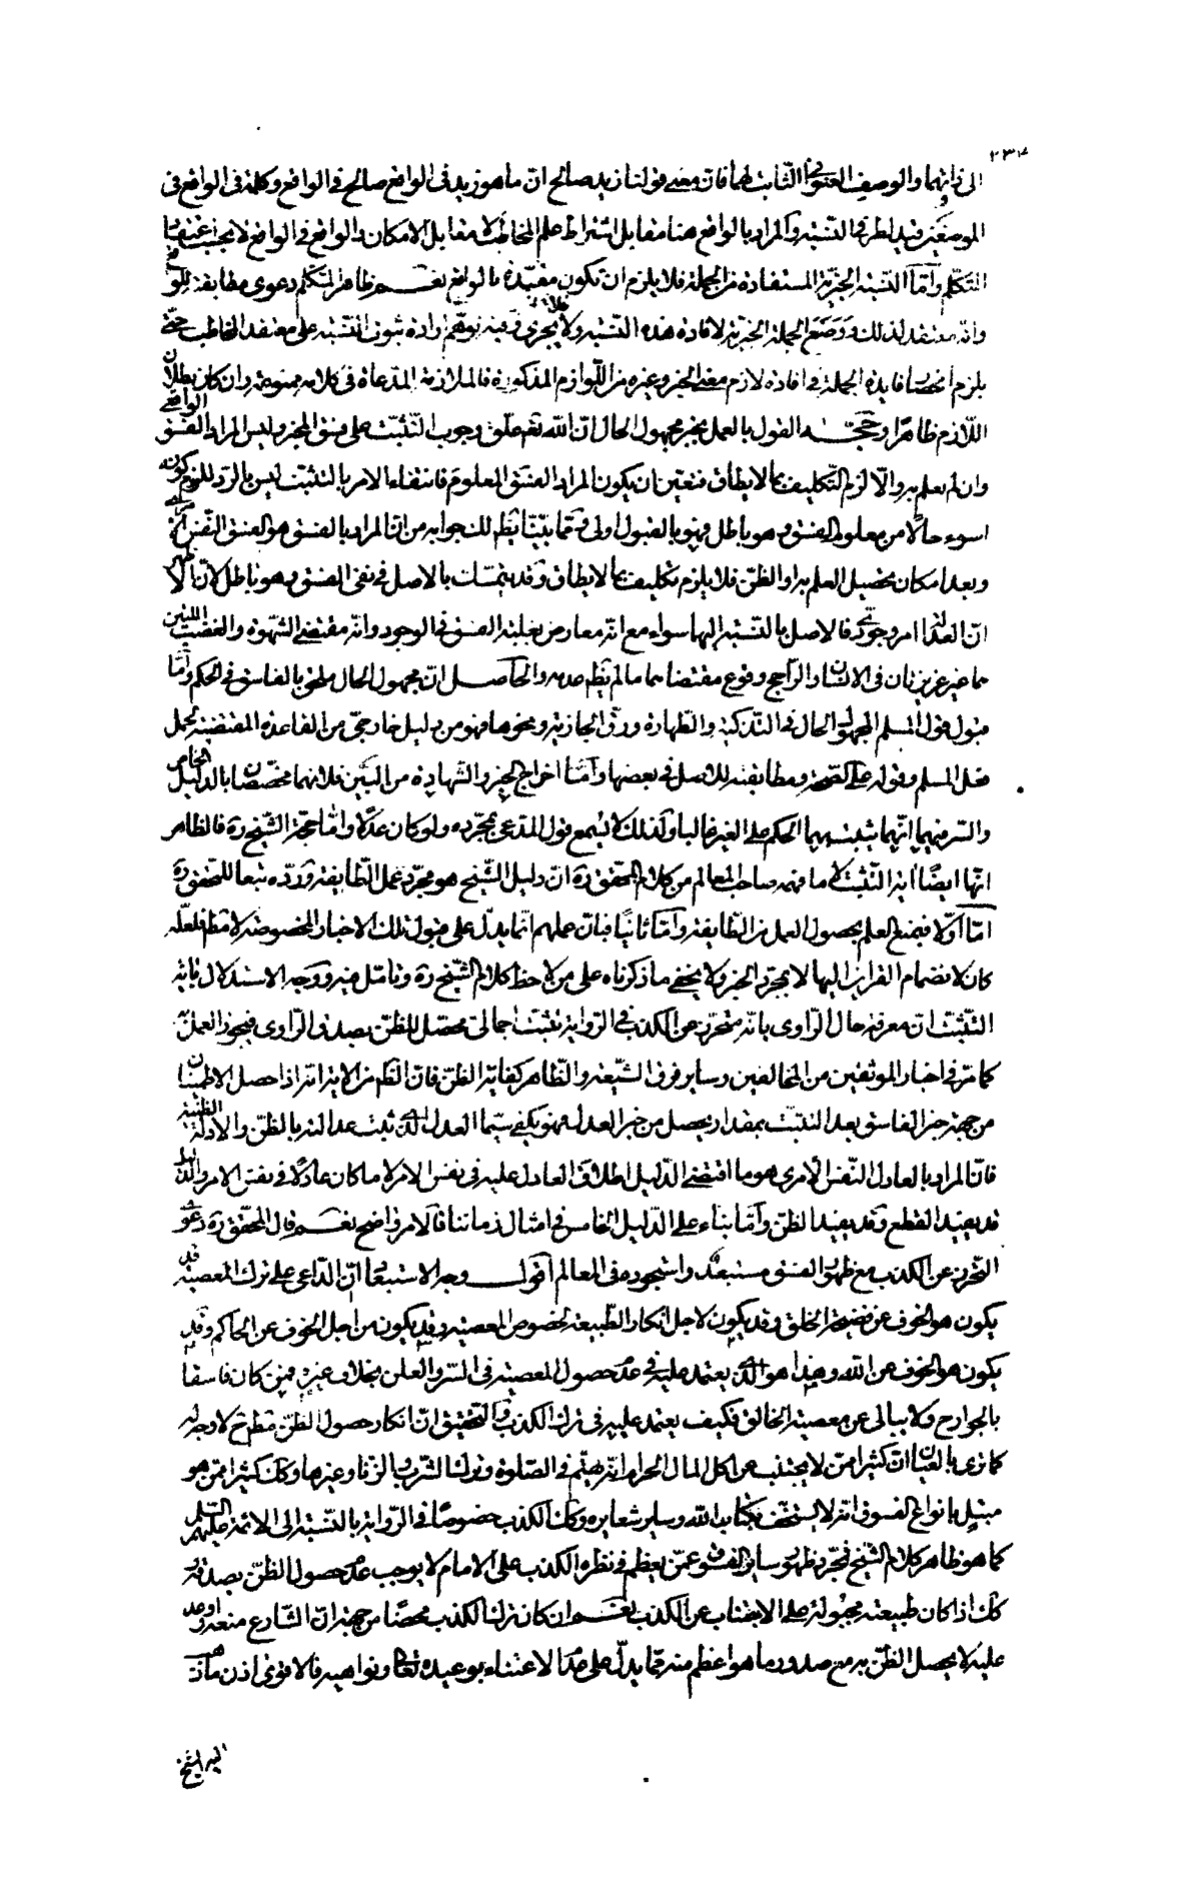 ٢٣٤
الى ذاتهما والوصف العنوانى الثابت لهما فان معنى قولنا زيد صالح ان ما هو زيد فى الواقع صالح فى الواقع وكلمة فى الواقع فى
الموضعين قيد لطرفى النسبة والمراد بالواقع هنا مقابل اشتراط علم المخاطب لا مقابل الامكان والواقع فى الواقع لا بحسب اعتقاد
المتكلم وامّا النسبة الخبرية المستفادة من الجملة فلا يلزم ان تكون مقيدة بالواقع نعم ظاهر المتكلم دعوى مطابقته للواقع
وانه معتقد لذلك ووضع الجملة الخبرية لافادة هذه النسبة ولا يجرى فيه توهم ارادة ثبوت النسبة على معتقد المخاطب حتى
يلزم انحصار فايدة الجملة فى افادة لازم معنى الخبر وغيره من اللوازم المذكورة فالملازمة المدعاة فى كلامه ممنوعة وان كان بطلان
اللازم ظاهرا وحجّة القول بالعمل بخبر مجهول الحال ان الله تعم علّق وجوب التثبت على فسق المخبر وليس المراد الفسق الواقعى
وان لم نعلم به والا لزم التكليف بما لا يطاق فتعين ان يكون المراد الفسق المعلوم فانتفاء الامر بالتثبت ليس بالرد للزوم كونه
اسوء حالا من معلوم الفسق وهو باطل فهو بالقبول اولى وممّا بيّنا يظهر لك جوابه من ان المراد بالفسق هو الفسق النفس الامرى
وبعد امكان تحصيل العلم به او الظن فلا يلزم تكليف بما لا يطاق وقد يتمسك بالاصل فى نفى الفسق وهو باطل لان الاظهر
ان العدالة امر وجودى فالاصل بالنسبة اليهما سواء مع انه معارض بغلبة الفسق فى الوجود وانه مقتضى الشهوة والغضب اللتين
هما غريزتان فى الانسان والراجح وقوع مقتضاهما ما لم يظهر عدمه والحاصل ان مجهول الحال ملحق بالفاسق فى الحكم وامّا
قبول قول المسلم المجهول الحال فى التذكية والطهارة ورق الجارية ونحوها فهو من دليل خارجى من القاعدة المقتضية لحمل
فعل المسلم وقوله على الصحة ومطابقته للاصل فى بعضها وامّا اخراج الخبر والشهادة من البين فلانهما مخصصان بالدليل الخاص
والسر فيهما انهما يثبت بهما الحكم على الغير غالبا ولذلك لا يسمع قول المدعى بمجرده ولو كان عدلا وامّا حجة الشيخ ره فالظاهر
انها ايضا اية التثبت لا ما فهمه صاحب المعالم من كلام المحقق ره ان دليل الشيخ هو مجرد عمل الطايفة وردّه تبعا للمحقق ره
امّا اولا فبمنع العلم بحصول العمل من الطايفة وامّا ثانيا فبان عملهم انما يدل على قبول تلك الاخبار المخصوصة لا مطلقا فلعله
كان لانضمام القراين اليها لا بمجرد الخبر ولا يخفى ما ذكرناه على من لاحظ كلام الشيخ ره وتامّل فيه ووجه الاستدلال باية
التثبت ان معرفة حال الراوى بانه متحرز عن الكذب فى الرواية تثبت اجمالى محصل للظن بصدق الراوى فيجوز العمل به
كما مرّ فى اخبار الموثقين من المخالفين وساير فرق الشيعة والظاهر كفاية الظن فان الظم من الاية انه اذا حصل الاطمينان
من جهة خبر الفاسق بعد التثبت بمقدار يحصل من خبر العدل فهو يكفى سيّما العدل الذى ثبت عدالته بالظن والادلة الظنية
فان المراد بالعادل النفس الامرى هو ما اقتضى الدليل اطلاق العادل عليه فى نفس الامر لا ما كان عادلا فى نفس الامر والدليل
قد يفيد القطع وقد يفيد الظن وامّا بناء على الدليل الخامس فى امثال زماننا فالامر واضح نعم قال المحقق ره دعوى
التحرز عن الكذب مع ظهور الفسق مستبعد واستجوده فى المعالم اقول وجه الاستبعاد ان الداعى على ترك المعصية قد
يكون هو الخوف عن فضيحة الخلق وقد يكون لاجل انكار الطبيعة لخصوص المعصية وقد يكون من اجل الخوف عن الحاكم وقد
يكون هو الخوف عن الله وهذا هو الذى يعتمد عليه فى عدم حصول المعصية فى السر والعلن بخلاف غيره فمن كان فاسقا
بالجوارح ولا يبالى عن معصية الخالق فكيف يعتمد عليه فى ترك الكذب والتحقيق ان انكار حصول الظن مطلقا لا وجه له
كما نرى بالعيان ان كثيرا ممن لا يجتنب عن اكل المال الحرام انه يهتم فى الصلوة وترك الشرب والزنا وغيرها وكذا كثيرا ممن هو
مبتلى بانواع الفسوق انه لا يستخف بكتاب الله وساير شعايره وكذا الكذب خصوصا فى الرواية بالنسبة الى الائمة عليهم السلم
كما هو ظاهر كلام الشيخ فمجرد ظهور ساير الفسوق عمن يعظم فى نظره الكذب على الامام لا يوجب عدم حصول الظن بصدقه
كك اذا كان طبيعته مجبولة على الاجتناب عن الكذب نعم ان كان ترك الكذب محضا من جهة ان الشارع منعه واوعد
عليه لا يحصل الظن به مع صدور ما هو اعظم منه مما يدل على عدم الاعتناء بوعيده تعالى ونواهيه فالاقوى اذن ما ذهب
اليه الشيخ